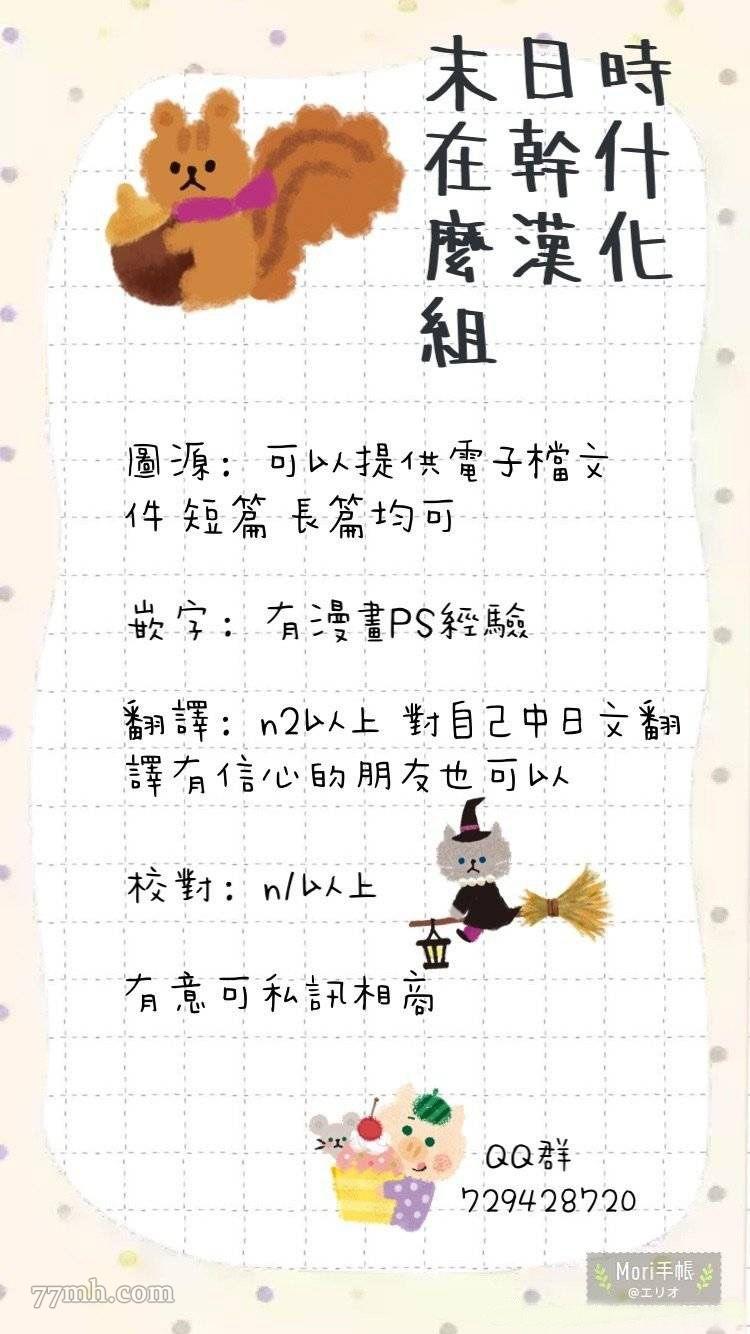 末日時
在幹什
麼漢化
組
圖源：可以提供電子檔文
件 短篇 長篇均可
嵌字：有漫畫PS經驗
翻譯：n2以上 對自己中日文翻
譯有信心的朋友也可以
校對：n1以上
有意可私訊相商
QQ群
729428720
Mori手帳
@エリオ
77mh.com